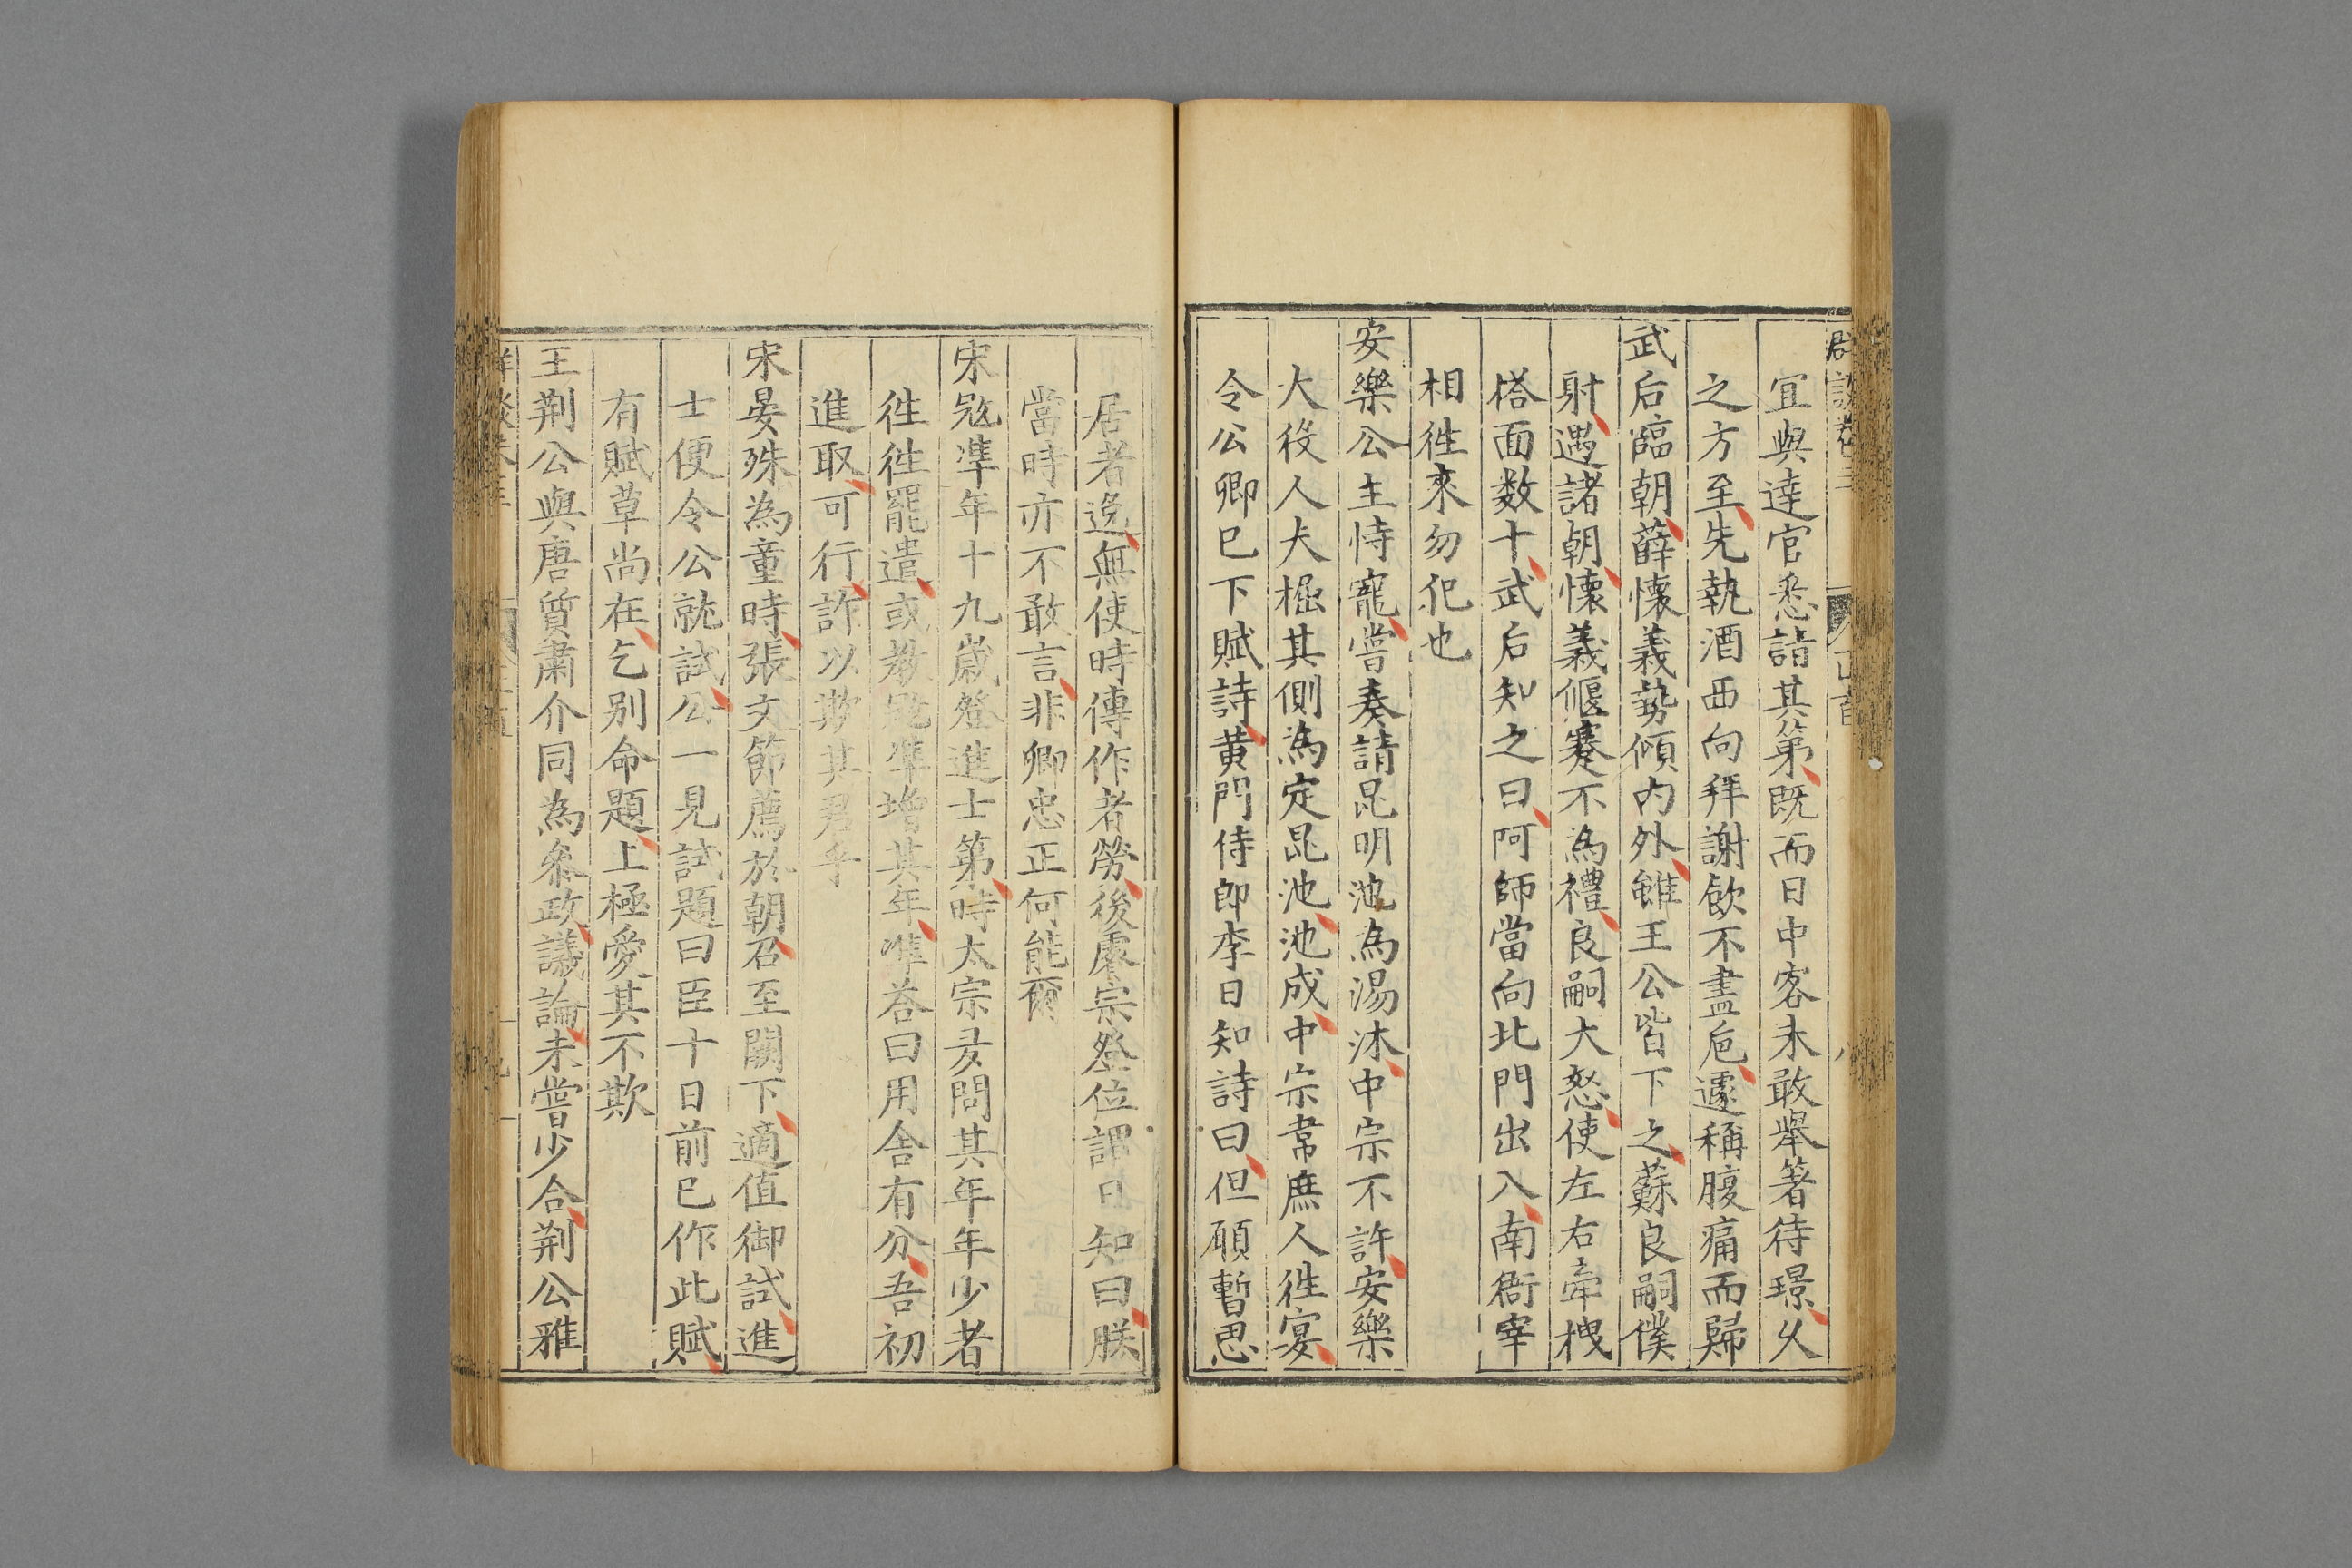 宜與達官悉詣其第既而日中客未敢舉箸待璟久
之方至先執酒西向拜謝飲不盡巵遽稱腹痛而歸
武后臨朝薛懷義勢傾內外雖王公皆下之蘇良嗣僕
射遇諸朝懷義偃蹇不為禮良嗣大怒使左右牽拽
搭面数十武后知之曰阿師當向北門出入南衙宰
相徃來勿犯也
安樂公主恃寵嘗奏請昆明池為湯沐中宗不許安樂
大役人夫掘其側為定昆池池成中宗韋庶人徃宴
令公卿已下賦詩黄門侍郎李日知詩曰但願暫思
居者逸無使時傳作者勞後睿宗登位謂日知曰朕
當時亦不敢言非卿忠正何能爾
宋宼準年十九歲登進士第時太宗多問其年年少者
徃徃罷遣或教宼準增其年準荅曰用舍有分吾初
進取可行詐以欺其君乎
宋晏殊為童時張文節薦於朝召至闕下適值御試進
士便令公就試公一見試題曰臣十日前已作此賦
有賦草尚在乞别命題上極愛其不欺
王荆公與唐質肅介同為叅政議論未嘗少合荆公雅